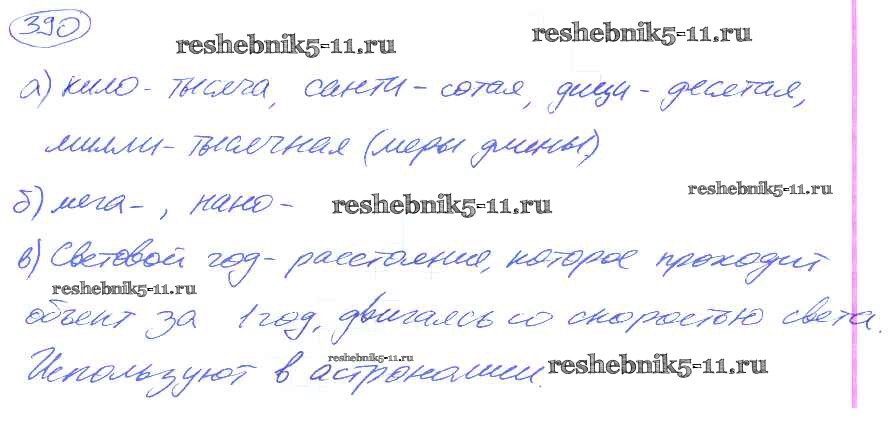 390
reshebnik5-11.ru reshebnik5-11.ru
а) кило - тысяча, санти - сотая, деци - десятая,
милли - тысячная (меры длины)
reshebnik5-11.ru
б) мега - , нано - reshebnik5-11.ru
в) Световой год - расстояние, которое проходит
reshebnik5-11.ru
объект за 1 год, двигаясь со скоростью света.
reshebnik5-11.ru
Используют в астрономии. reshebnik5-11.ru